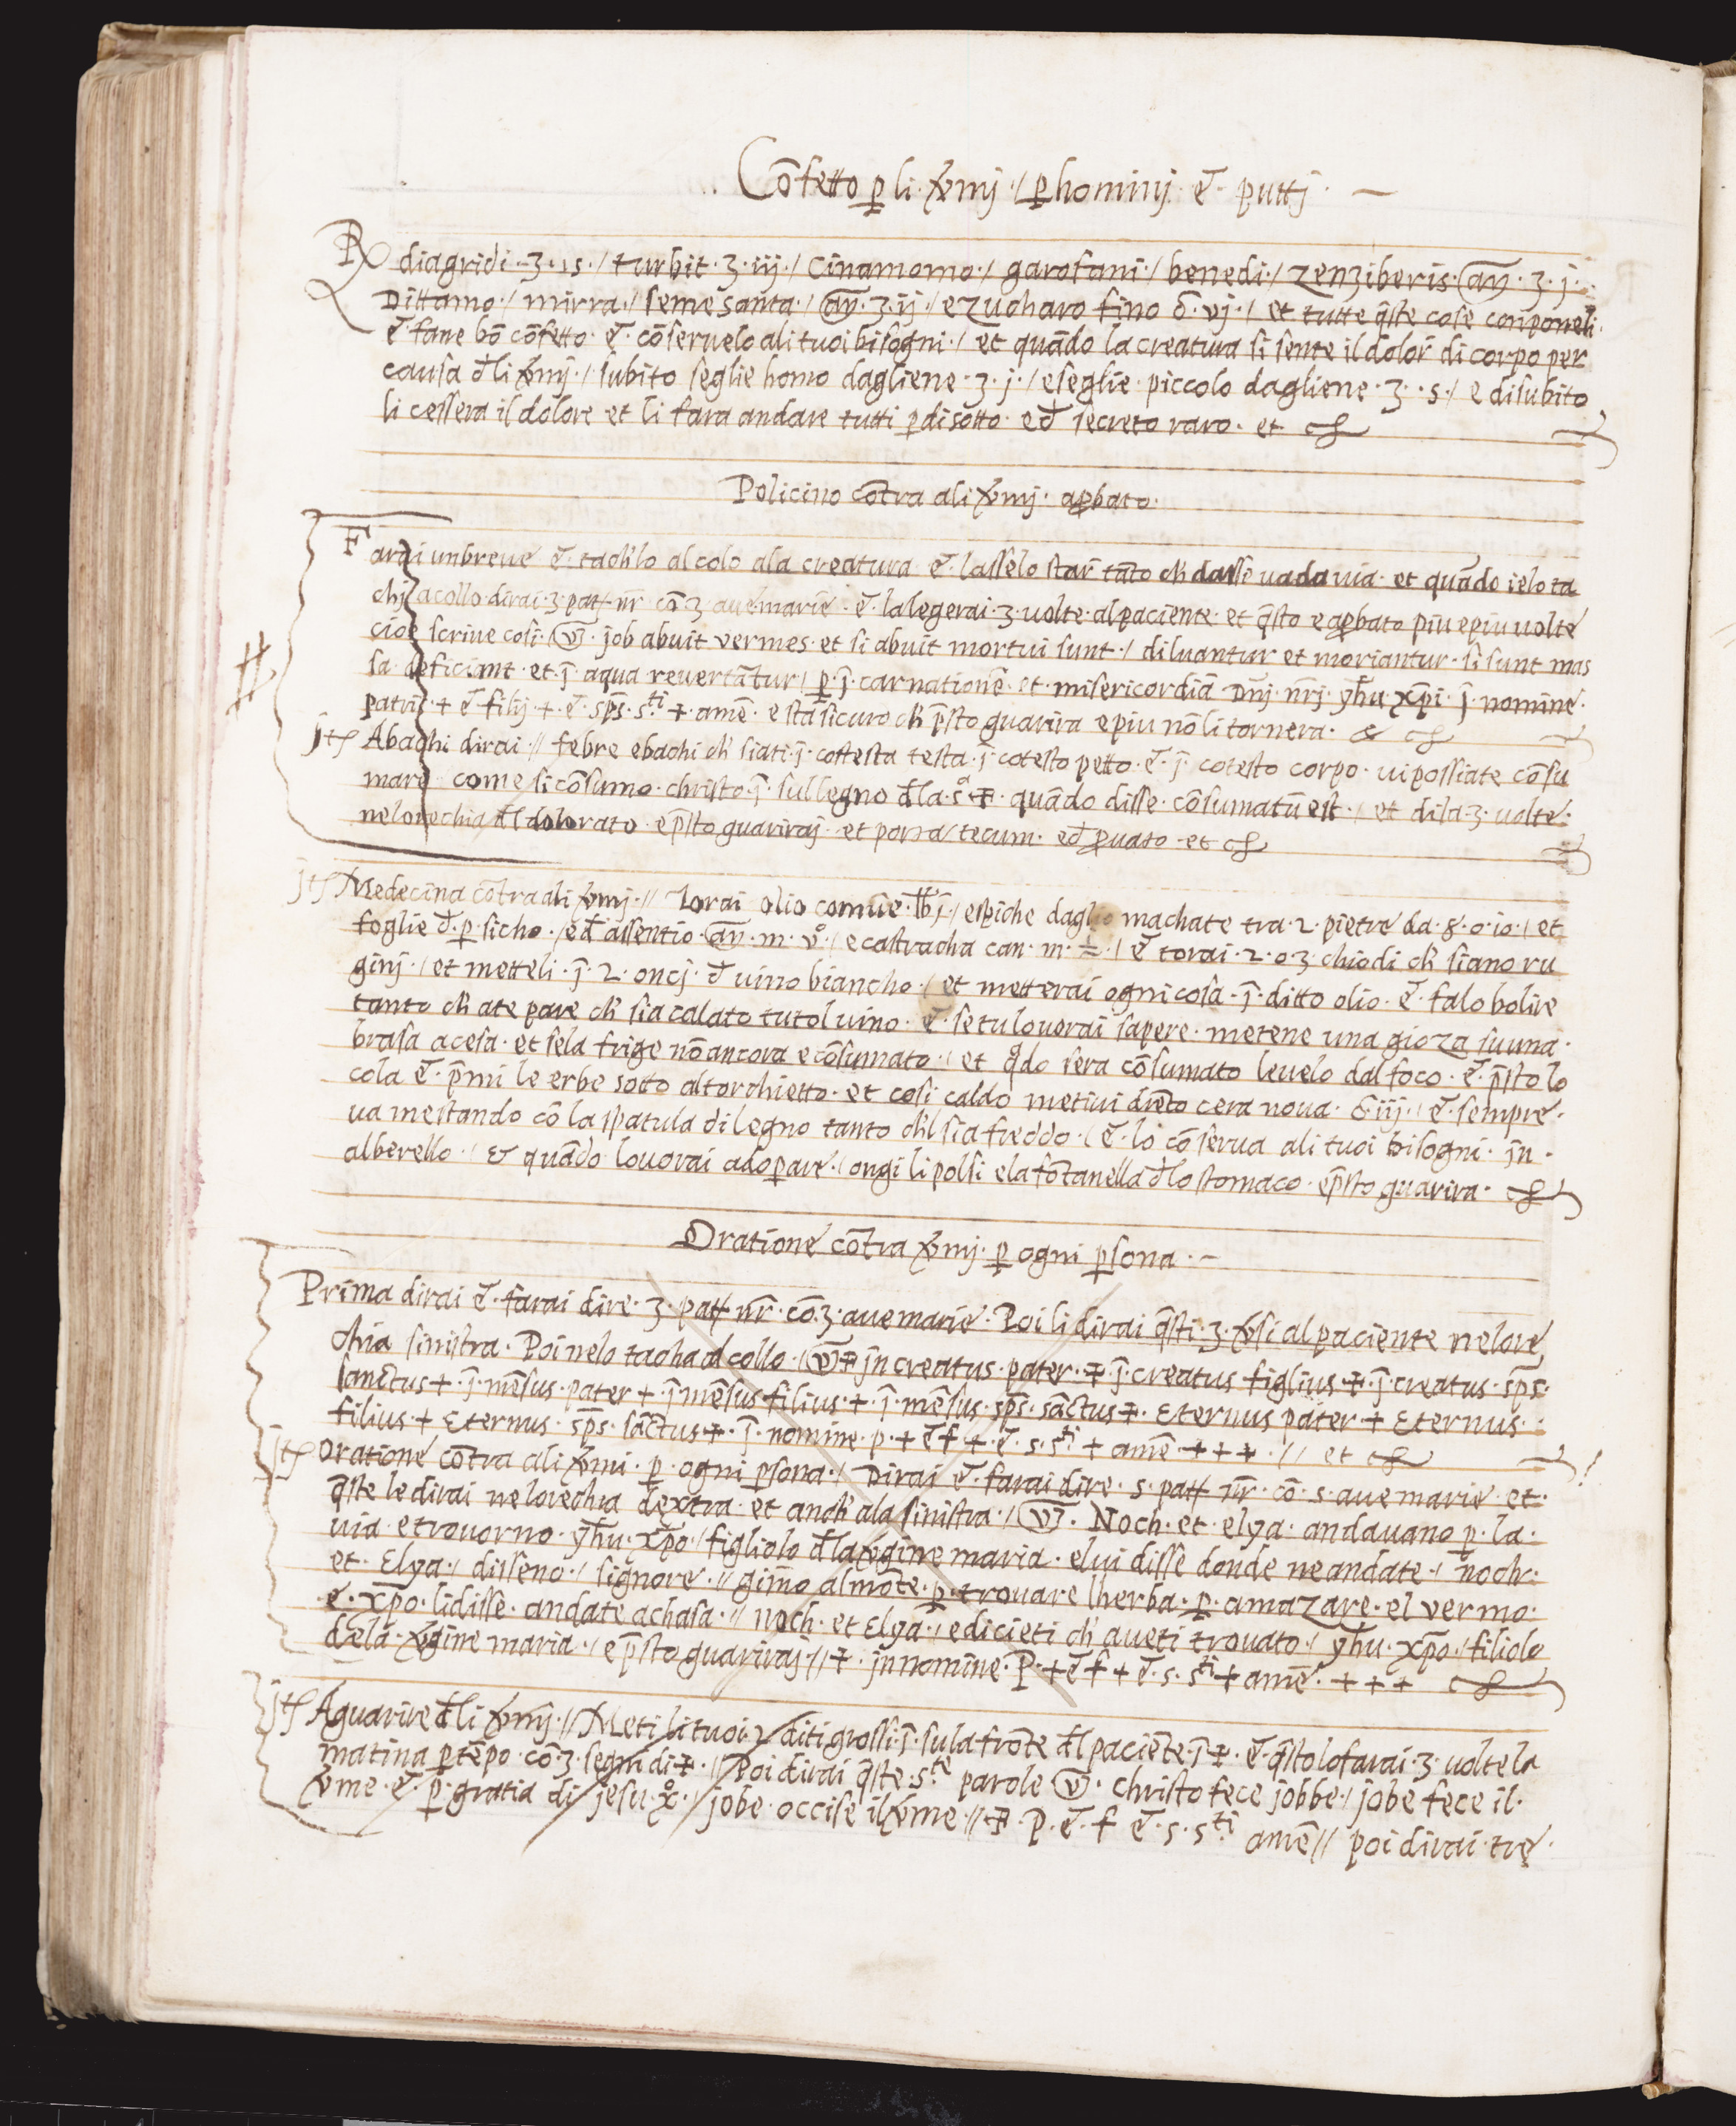 Cōfetto ꝑ li v̄mj / ꝑ hominj · et · puttj · —
Rx diagridi · ʒ · is · / turbit · ʒ · iij · / Cinamomo · / garofani · / benedi · / zenziberis · an̄ · ʒ · j ·
Dittamo · / mirra · / seme santa · / an̄ · ʒ · ij · / e zucharo fino ℥ · vj · / et tutte q̄ste cose conponeli ·
et fane bō cōfetto · et · cōseruelo ali tuoi bisogni · / et quādo la creatura si sente il dolor̄ di corpo per
causa đli v̄mj · / subito seglie homo dagliene · ʒ · j · / e seglie · piccolo dagliene · ʒ · s · / e di subito
li cessera il dolore et li fara andare tutti ꝑ di sotto · ed secreto raro · et cꝭ
Policino cōtra ali v̄mj · aꝓbato ·
Farai un breue et · tach'lo al colo ala creatura · et · lasselo star̄ tāto ch' dassi uada uia · et quādo ielo ta
chj acollo dirai · 3 · patr̄ nr̄ · cō 3 aue marie · et · la legerai · 3 · uolte · al paciente · et q̄sto e aꝓbato piu e piu uolte
cioe scriue cosi · v̄ · job abuit vermes · et si abuit mortui sunt · / diluantur et moriantur · si sunt mas
sa · deficiunt · et · ī aqua reuertātur / ꝑ · ī · carnationē · et · misericordiā Dn̄j nr̄j yh̄u xp̄i · ī nomine ·
patris · + et filij · + · et · sp̄s · sti · + · amē · e sta sicuro ch' p̄sto guarira e piu nō li tornera · & cꝭ
jtꝭ Abachi dirai · // febre e bachi ch' siati · ī · cottesta testa · ī cotesto petto · et · ī cotesto corpo · ui possiate cōsu
mare come si cōsumo · christo · ī · sul legno đla · sa · + · quādo disse · cōsumatū est · / et dila · 3 · uolte ·
nelorechia đl dolorato · e p̄sto guariraj · et porra tecum · ed ꝓuato · et cꝭ
jtꝭ Medecina cōtra ali v̄mj · // Torai olio comūe · lb j · / e spiche daglio machate tra · 2 · pietre da · 8 · o · io · / et
foglie đ · ꝑ · sicho · / ed assentio · an̄ · m · v° · / e castracha can · m · ÷ · / et torai · 2 · o 3 chiodi ch' siano ru
ginj · / et metteli · ī · 2 · oncj · đ uino biancho · / et metterai ogni cosa · ī · ditto olio · et · falo bolire
tanto ch' ate pare ch' sia calato tutol uino · et · se tu lo uorai sapere · metene una gioza su una ·
brasa acesa · et sela frige nō ancora e cōsumato · / et qdo sera cōsumato leuelo dal foco · et · p̄sto lo
cola et · p̄mi le erbe sotto al torchietto · et cosi caldo metiui drēto cera noua · ℥ · iij · / et · sempre ·
ua mestando cō la spatula di legno tanto ch'l sia freddo · / et · lo cōserua ali tuoi bisogni · jn ·
alberello · / & quādo lo uorai adoꝑare · / ongi li polsi e la fōtanella đlo stomaco · e p̄sto guarira · cꝭ
Oratione cōtra v̄mj · ꝑ ogni ꝑsona · —
Prima dirai et · farai dire · 3 · patr̄ nr̄ · cō · 3 · aue marie · Poi li dirai q̄sti · 3 · v̄si al paciente nelore
chia sinistra · Poi nelo tacha al collo · / v̄ + jn creatus · pater · + · ī · creatus figlius · + · ī · creatus · sp̄s ·
sanctus + · ī · mēsus · pater + · ī · mēsus filius · + · ī · mēsus · sp̄s · sāctus + · Eternus pater + Eternus ·
filius · + Eternus · sp̄s · sāctus + · ī · nomine · p · + et f + · et · s · sti + amē · + + + · // et cꝭ
jtꝭ Oratione cōtra ali v̄mi · ꝑ · ogni ꝑsona · / Dirai et · farai dire · s · patr̄ nr̄ · cō · s · aue marie · et ·
q̄ste le dirai nelorechia dextra · et anch' ala sinistra · / v̄ · Noch · et · elya · andauano ꝑ · la ·
uia · e trouorno · yh̄u · xp̄o / figliolo đla v̄gine maria · e lui disse donde ne andate · / noch ·
et · Elya · / disseno · / signore · // gimo al mōte · ꝑ · trouare lherba · ꝑ · amazare · el vermo ·
· e · xp̄o · li disse · andate achasa · // noch · et Elya · / e dicieti ch' aueti trouato · / yh̄u · xp̄o · / filiolo
dela · v̄gine maria · / e p̄sto guariraj · // + · jn nomine · P · + et f + et · s · sti + amē · + + + cꝭ
jtꝭ A guarire đli v̄mj · // Meti li tuoi · 2 · diti grossi · ī · su la frōte đl paciēte · ī + · et · q̄sto lo farai · 3 · uolte la
matina ꝑ tēpo · cō · 3 · segni di + · // Poi dirai q̄ste · ste parole v̄ · Christo fece jobbe · / jobe fece il ·
v̄me · et · ꝑ · gratia di jesu · xo · / jobe · occise il v̄me · // + · P · et · f et · s · sti amē // poi dirai · tre ·